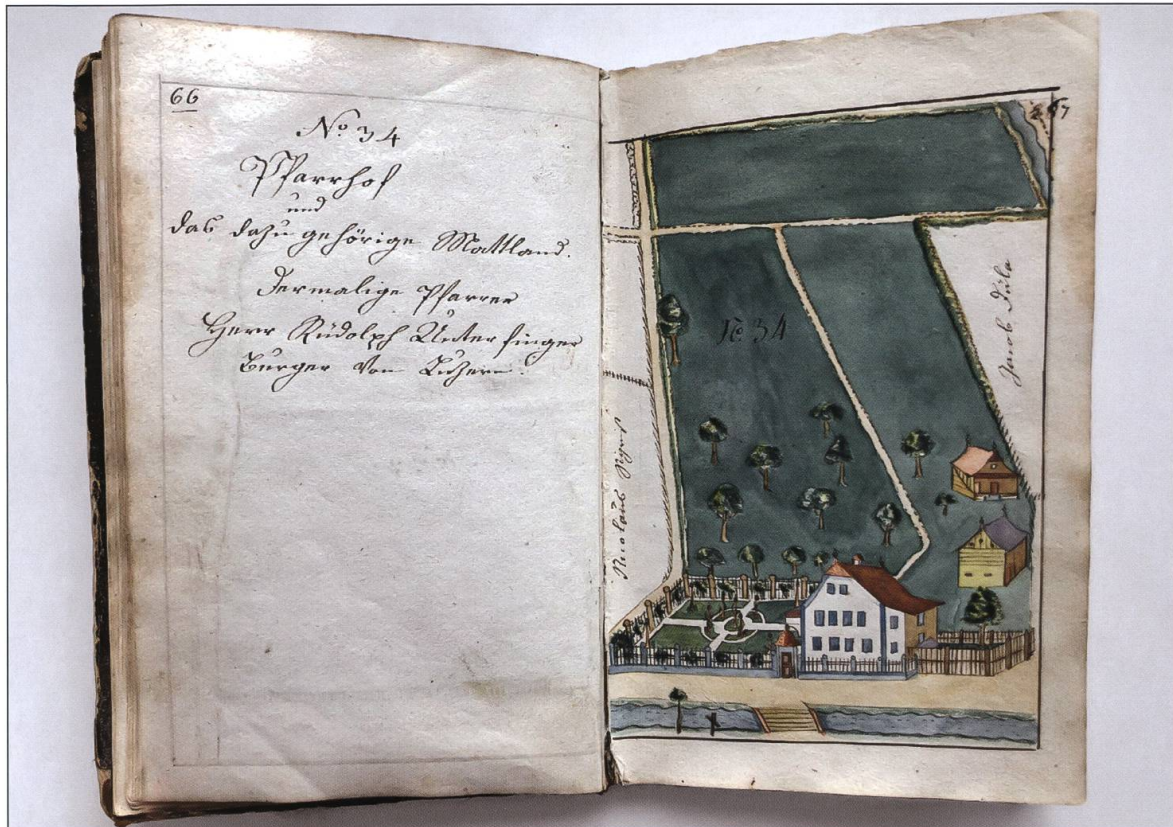 66
No. 34
Pfarrhof
und
das dazu gehörige Mattland.
Dermalige Pfarrer
Herr Rudolph Unterfinger
Burger von Luzern.
67
No. 34
Jacob
Nicolaus